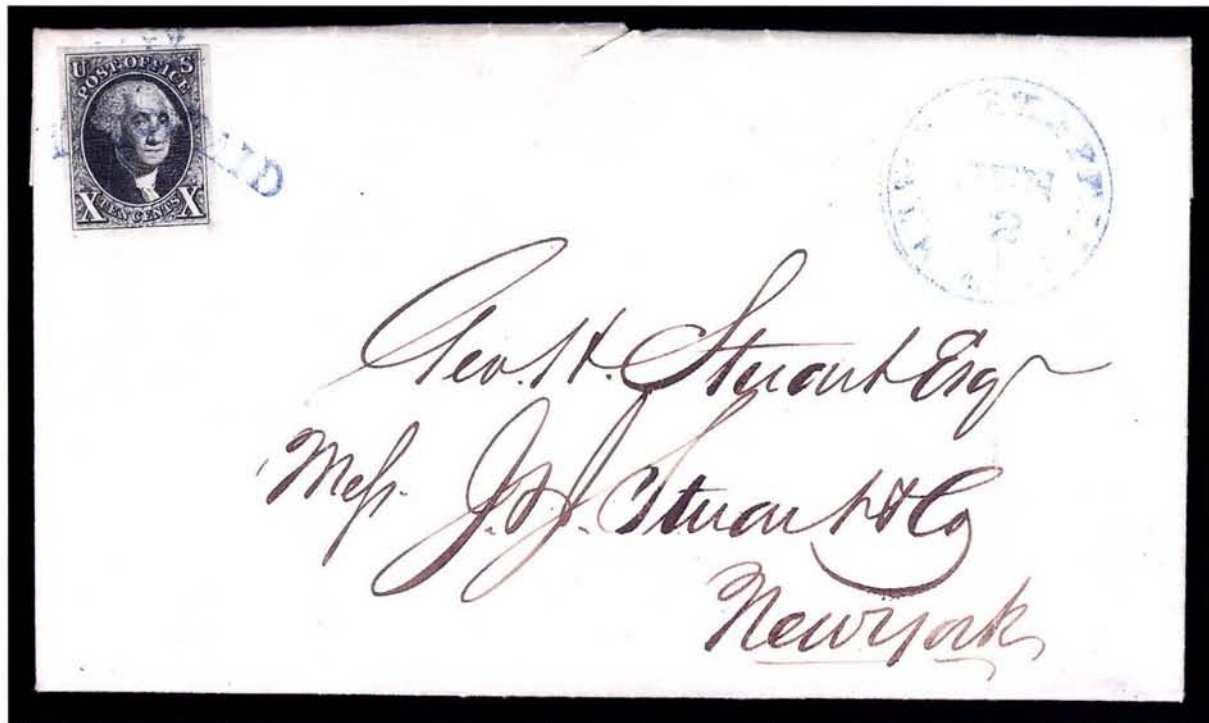 U S
POST OFFICE
X TEN CENTS X
JUN
2
Geo. H. Stuart Esq
Mess. J. & J. Stuart & Co
New York